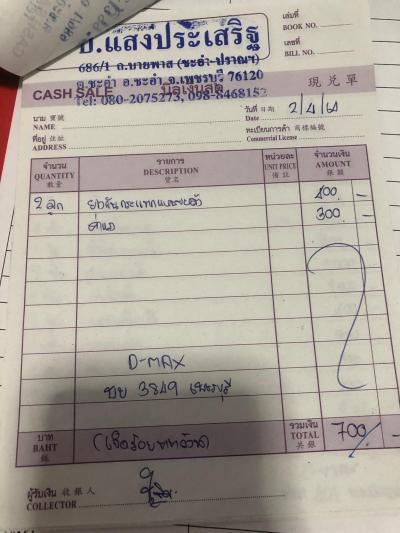 อ.แสงประเสริฐ
686/1 ถ.บายพาส (ชะอำ-ปราณฯ)
ต.ชะอำ อ.ชะอำ จ.เพชรบุรี 76120
Tel: 080-2075273, 098-8468153
เล่มที่
BOOK NO.
เลขที่
BILL NO.
CASH SALE บิลเงินสด 現兑單
นาม 寶號
NAME
วันที่ 日期
Date 2/4/61
ที่อยู่ 住址
ADDRESS
ทะเบียนการค้า 商標編號
Commercial License
จำนวน
QUANTITY
數量
รายการ
DESCRIPTION
貨名
หน่วยละ
UNIT PRICE
備註
จำนวนเงิน
AMOUNT
銀額
2 ลูก ยางกันกระแทก 400 -
ค่าแรง 300 -
D-MAX
บย 3849 เพชรบุรี
บาท
BAHT
銖
(เจ็ดร้อยบาทถ้วน)
รวมเงิน
TOTAL
共銀
700/-
ผู้รับเงิน 收銀人
COLLECTOR